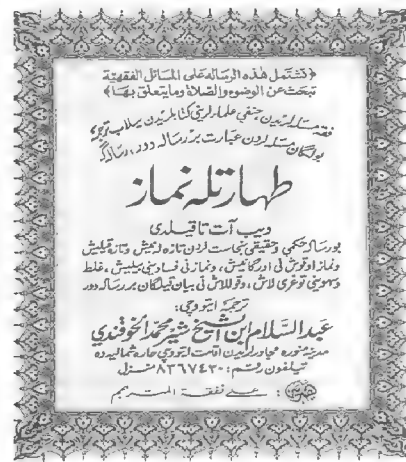 ﴿تشتمل هذه الرسالة على المسائل الفقهية
تبحث عن الوضوء والصلاة وما يتعلق بها﴾
فقه مسئله‌لریدین، حنفی علمالرینی کتابلریدین ییغلاب ترجمه
بولگان مسئله‌لردن عبارت بر رساله دور، رساله‌گه
طهارتله نماز
دیب آت تاقیلدی
بورساله حکمی وحقیقی نجاست لردن تازه لنیش وتازه قیلیش
ونماز اوقوش نی اورگانیش، ونمازنی فسادینی بیلیش، غلط
وسهوینی توغری لاش، وقوللاش نی بیان قیلگان بر رساله دور
ترجمه ایتووچی:
عبد السلام ابن الشیخ شیر محمد الخوقندي
مدینه منوره مجاورلریدن اقامت ایتووچی حاره شمالیه ده
تیلفون رقم: ٨٣٦٧٤٣٠ منزل
: على نفقة المترجم